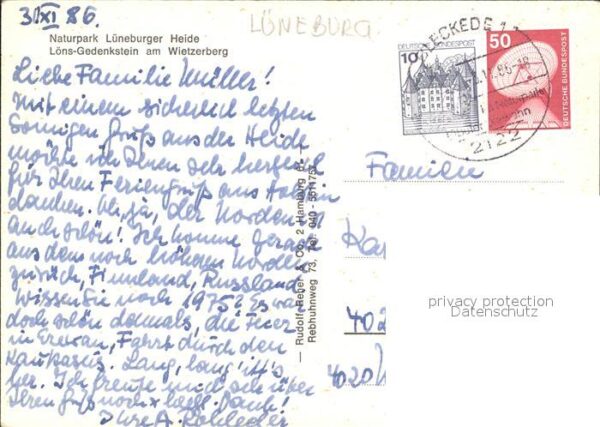 31/XI 86.
LÜNEBURG
Naturpark Lüneburger Heide
Löns-Gedenkstein am Wietzerberg
Liebe Familie Müller!
Mit einem sicherlich letzten
sonnigen Gruß aus der Heide
möchte ich Ihnen sehr herzlich
für Ihren Feriengruß aus
danken. Oh, ja, der Norden ist
auch schön! Ich komme gerade
aus dem noch höheren Norden
zurück, Finnland, Russland.
Wissen Sie noch 1975? Es war
doch schön damals, die Feier
in Erewan, Fahrt durch den
Kaukasus. Lang, lang ist's
her. Ich freute mich sehr über
Ihren Gruß noch x herzl. Dank!
Ihre A. Rohleder
Rudolf Reher & Co, 2 Hamburg 61
Rebhuhnweg 73, Tel. 040 - 5511757
BLECKEDE 1
2122
10
DEUTSCHE BUNDESPOST
50
DEUTSCHE BUNDESPOST
Familien
Ka
402
4020
privacy protection
Datenschutz